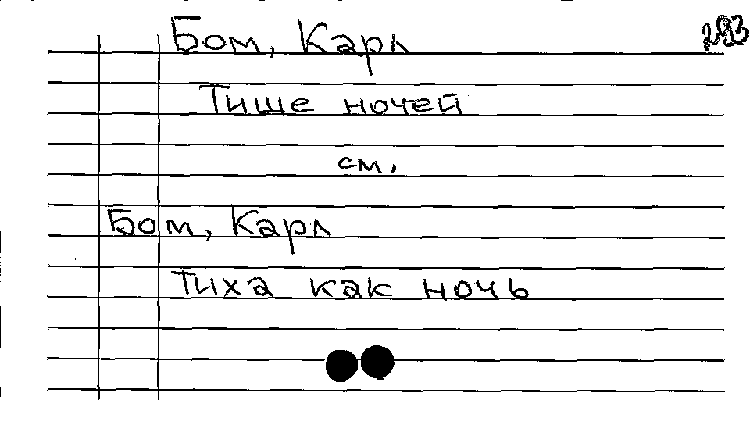 Бом, Карл
293
Тише ночей
см.
Бом, Карл
Тиха как ночь